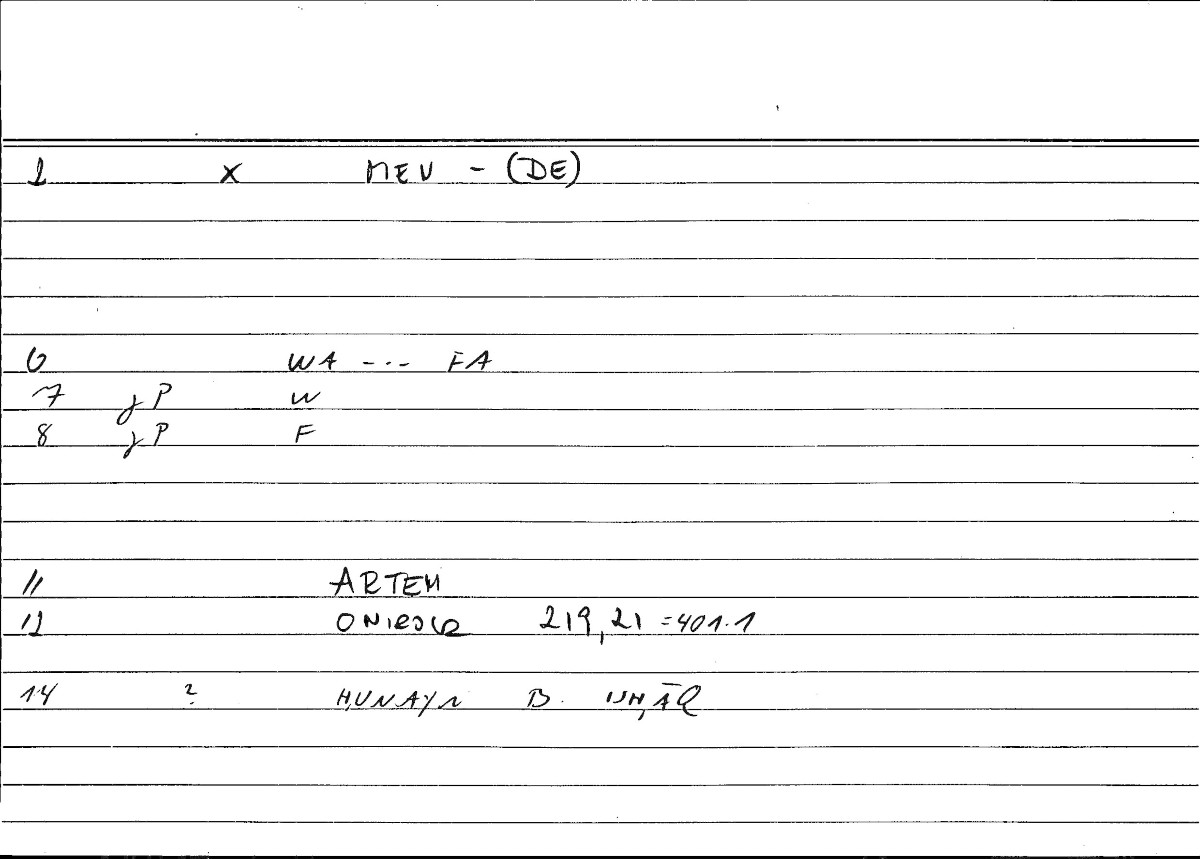 1 x MEV - (DE)
6 WA --·- FA
7 gP W
8 gP F
11 ARTEM
12 ONIROCR 219,21 =401.1
14 ? H,UNAYN B. ISH,ĀQ